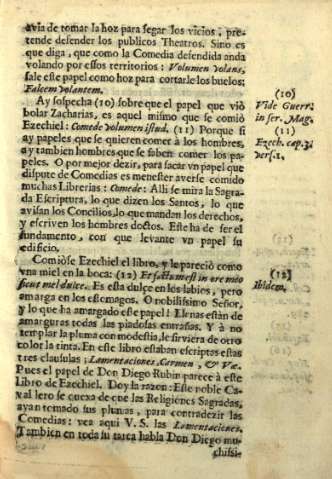 avia de tomar la hoz para segar los vicios, pre-
tende defender los publicos Theatros. Sino es
que diga, que como la Comedia defendida anda
volando por essos territorios: Volumen volans,
sale este papel como hoz para cortarle los buelos:
Falcem volantem.
Ay sospecha (10) sobre que el papel que viò
bolar Zacharias, es aquel mismo que se comiò
Ezechiel: Comede volumen istud. (11) Porque si
ay papeles que se quieren comer à los hombres,
ay tambien hombres que se saben comer los pa-
peles. O por mejor dezir, para sacar vn papel que
dispute de Comedias es menester averse comido
muchas Librerias: Comede: Alli se mira la Sagra-
da Escriptura, lo que dizen los Santos, lo que
avisan los Concilios, lo que mandan los derechos,
y escriven los hombres doctos. Este ha de ser el
fundamento, con que levante vn papel su
edificio.
Comiòse Ezechiel el libro, y le pareciò como
vna miel en la boca: (12) Et factum est in ore meo
sicut mel dulce. Es esta dulce en los labios, pero
amarga en los estomagos. O nobilissimo Señor,
y lo que ha amargado este papel! Llenas estàn de
amarguras todas las piadosas entrañas. Y à no
templar la pluma con modestia, le sirviera de otro
color la tinta. En este libro estaban escriptas estas
tres clausulas; Lamentaciones, Carmen, & Væ.
Pues el papel de Don Diego Rubin parece à este
Libro de Ezechiel. Doy la razon: Este noble Ca-
vallero se quexa de que las Religiones Sagradas,
ayan tomado sus plumas, para contradezir las
Comedias: vea aqui V. S. las Lamentaciones.
Tambien en toda su tarea habla Don Diego mu-
chissi-
(10)
Vide Guerr.
in ser. Mag.
(11)
Ezech. cap. 3.
vers. 1.
(12)
Ibidem.